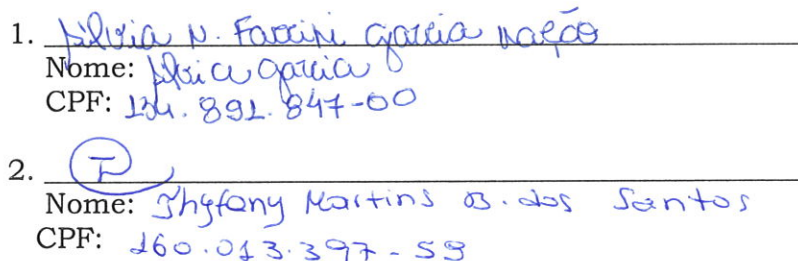 1. Silvia N. Faccini Garcia
Nome: Silvia Garcia
CPF: 134.891.847-00
2. T
Nome: Thyfany Martins B. dos Santos
CPF: 160.013.397-59